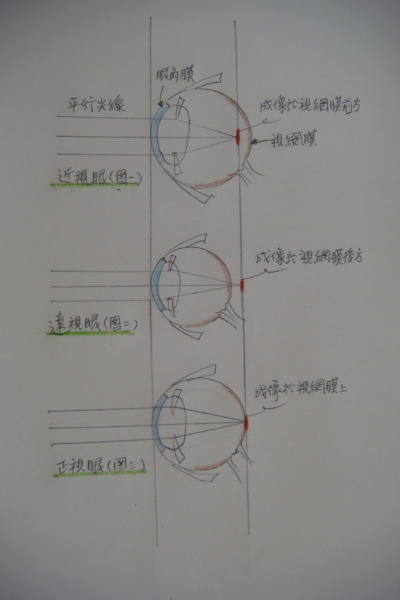 眼角膜
平行光線
成像於視網膜前方
視網膜
近視眼(图一)
成像於視網膜後方
遠視眼(图二)
成像於視網膜上
正視眼(图三)